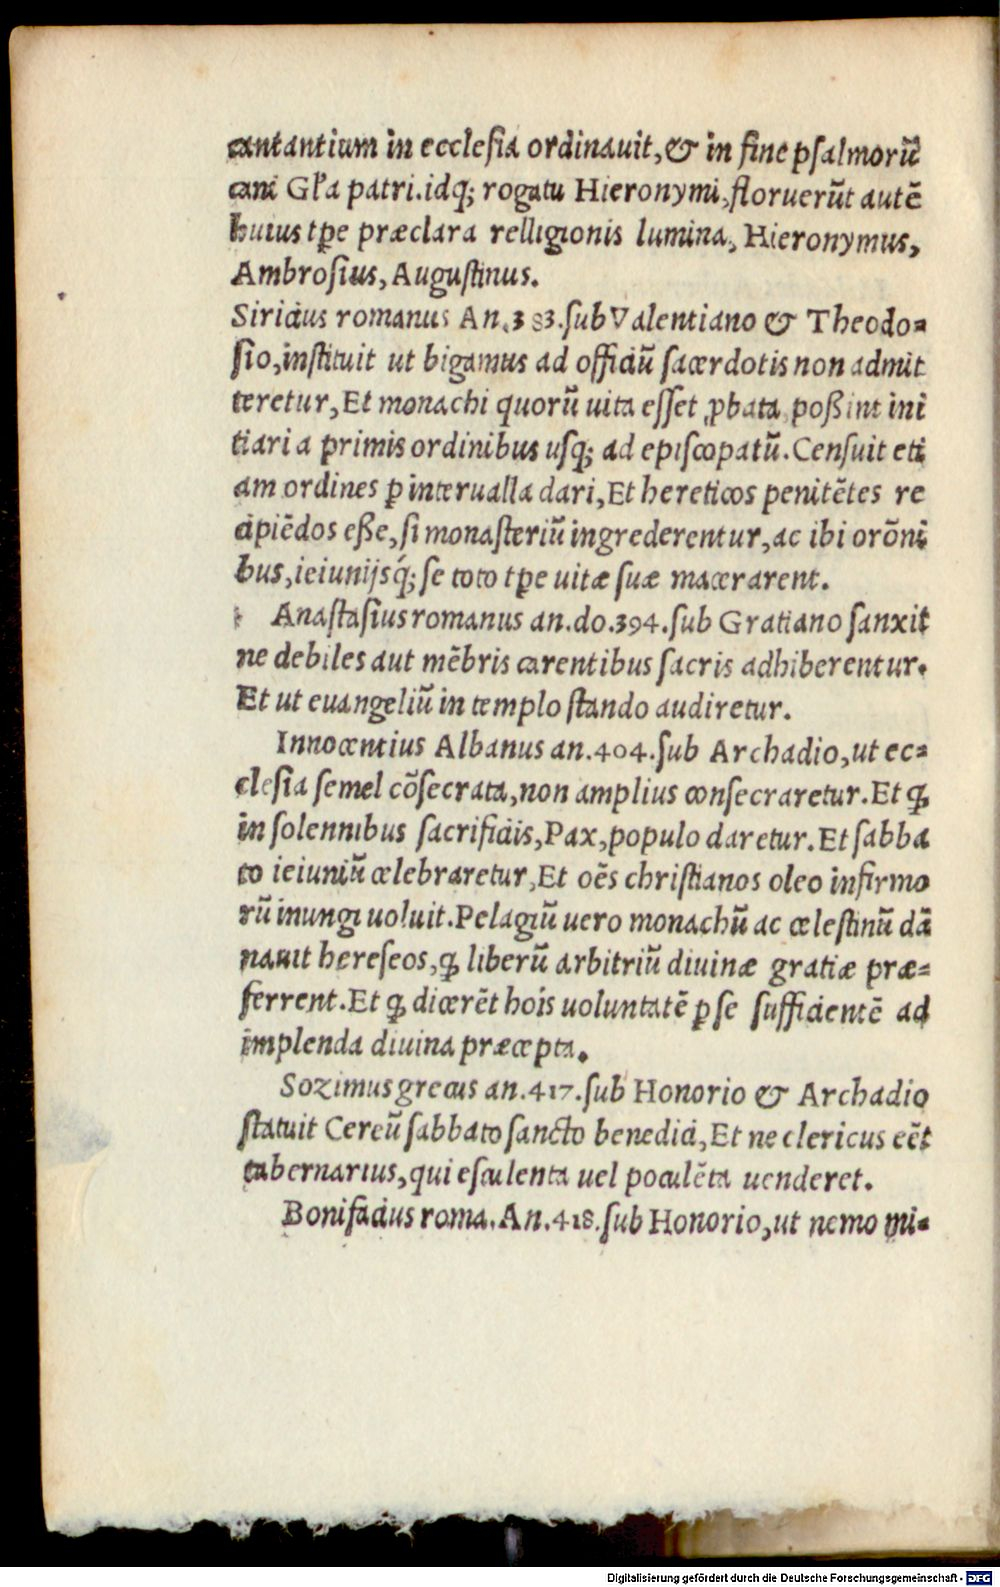 cantantium in ecclesia ordinauit, & in fine psalmorũ
cani Gl'a patri. idq; rogatu Hieronymi, floruerũt autẽ
huius tꝑe præclara relligionis lumina, Hieronymus,
Ambrosius, Augustinus.
Siricius romanus An. 383. sub Valentiano & Theodo=
sio, instituit ut bigamus ad officiũ sacerdotis non admit
teretur, Et monachi quorũ uita esset ꝓbata, poßint ini
tiari a primis ordinibus usq; ad episcopatũ. Censuit eti
am ordines ꝑ interualla dari, Et hereticos penitẽtes re
cipiẽdos eße, si monasteriũ ingrederentur, ac ibi orõni
bus, ieiunijsq́; se toto tꝑe uitæ suæ macerarent.
Anastasius romanus an. do. 394. sub Gratiano sanxit
ne debiles aut mẽbris carentibus sacris adhiberentur.
Et ut euangeliũ in templo stando audiretur.
Innocentius Albanus an. 404. sub Archadio, ut ec=
clesia semel cõsecrata, non amplius consecraretur. Et ꝙ
in solennibus sacrificiis, Pax, populo daretur. Et sabba
to ieiuniũ celebraretur, Et oẽs christianos oleo infirmo
rũ inungi uoluit. Pelagiũ uero monachũ ac celestinũ dã
nauit hereseos, ꝙ liberũ arbitriũ diuinæ gratiæ præ=
ferrent. Et ꝙ dicerẽt hoĩs uoluntatẽ ꝑ se sufficientẽ ad
implenda diuina præcepta.
Sozimus grecus an. 417. sub Honorio & Archadio
statuit Cereũ sabbato sancto benedici, Et ne clericus eẽt
tabernarius, qui esculenta uel poculẽta uenderet.
Bonifacius roma. An. 418. sub Honorio, ut nemo mi=
Digitalisierung gefördert durch die Deutsche Forschungsgemeinschaft - DFG